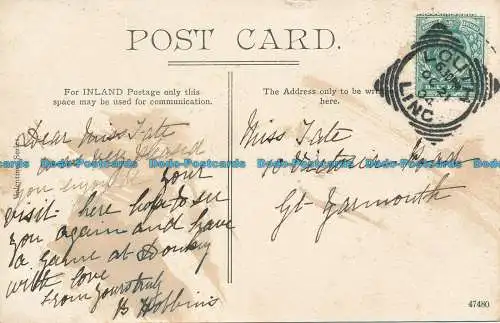 POST CARD.
For INLAND Postage only this
space may be used for communication.
The Address only to be written
here.
LOUTH
LINC
Dear Miss Tate
pleased
you enjoyed your
visit here hope to see
you again and have
a game at Donkey
with love
From yours truly
B Hobbins
Miss Tate
Victoria Road
Gt Yarmouth
Valentines Series
47480
Bobs-Postcards Bobs-Postcards Bobs-Postcards Bobs-Postcards